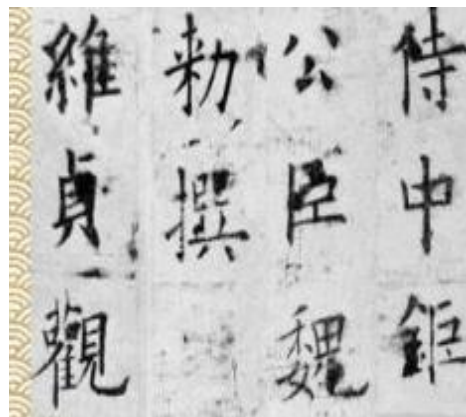 侍中鉅
公臣魏
勑撰
維貞觀